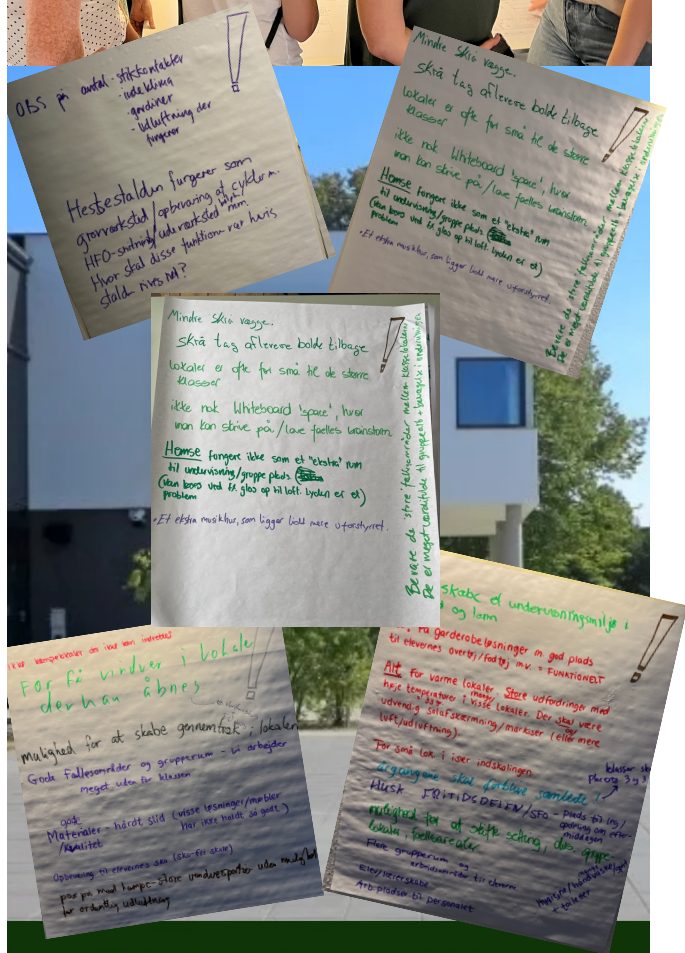 OBS på antal - stikkontakter
- udeklima
- gardiner
- udluftning der
fungerer
Hestestalden fungerer som
grovværksted/opbevaring af cykler m.
HFO-snitning/udeværksted mm.
Hvor skal disse funktioner være hvis
stalden rives ned?
Mindre skrå vægge.
Skrå tag aflevere bolde tilbage
Lokaler er ofte for små til de større
klasser
ikke nok Whiteboard 'space', hvor
man kan skrive på/lave fælles brainstorm.
Hemse fungere ikke som et "ekstra" rum
til undervisning/gruppe plads
(Van bors ved fx glas op til loft. Lyden er et)
problem
• Et ekstra musikhus, som ligger lidt mere uforstyrret.
Bevare de store fællesområder mellem klasselokalerne
De er meget værdifulde til gruppearb + bevægelse i undervisningen
Mindre skrå vægge.
Skrå tag aflevere bolde tilbage
Lokaler er ofte for små til de større
klasser
ikke nok Whiteboard 'space', hvor
man kan skrive på/lave fælles brainstorm.
Hemse fungere ikke som et "ekstra" rum
til undervisning/gruppe plads
(Van bors ved fx glas op til loft. Lyden er et)
problem
• Et ekstra musikhus, som ligger lidt mere uforstyrret.
Bevare de store fællesområder mellem klasselokalerne
De er meget værdifulde til gruppearb + bevægelse i undervisningen
For få vinduer i lokaler
der kan åbnes
mulighed for at skabe gennemtræk i lokaler
Gode fællesområder og grupperum - vi arbejder
meget uden for klassen
gode
Materialer - hårdt slid (visse løsninger/møbler
/kvalitet har ikke holdt så godt)
Opbevaring til elevernes sko (sko-fri skole)
pas på med kæmpe-store vinduespartier uden mulighed
for ordentlig udluftning
skabe et undervisningsmiljø i
og larm
få garderobeløsninger m. god plads
til elevernes overtøj/fodtøj m.v. = FUNKTIONELT
Alt for varme lokaler. Store udfordringer med
høje temperaturer i mange/visse lokaler. Der skal være
udvendig solafskærmning/markiser (eller mere
luft/udluftning).
For små lok i især indskolingen
årgangene skal forblive samlede!
klasser
placeres 3 og 3
Husk FRITIDSDELEN/SFO - plads til leg/
opdeling om efter-
middagen
mulighed for at skifte setting, dvs gruppe-
lokaler, fællesarealer
Flere grupperum og
arbejdsområder til eleverne
Elev/lærerskabe
Arb.pladser til personalet
+ toiletter